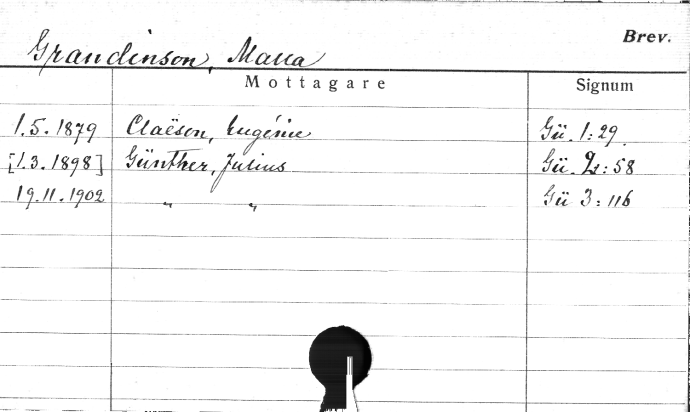 Brev.
Grandinson, Maria
Mottagare Signum
1.5.1879 Claëson, Eugénie Gü. 1:29.
[1.3.1898] Günther, Julius Gü. 2:58
19.11.1902 " " Gü 3:116